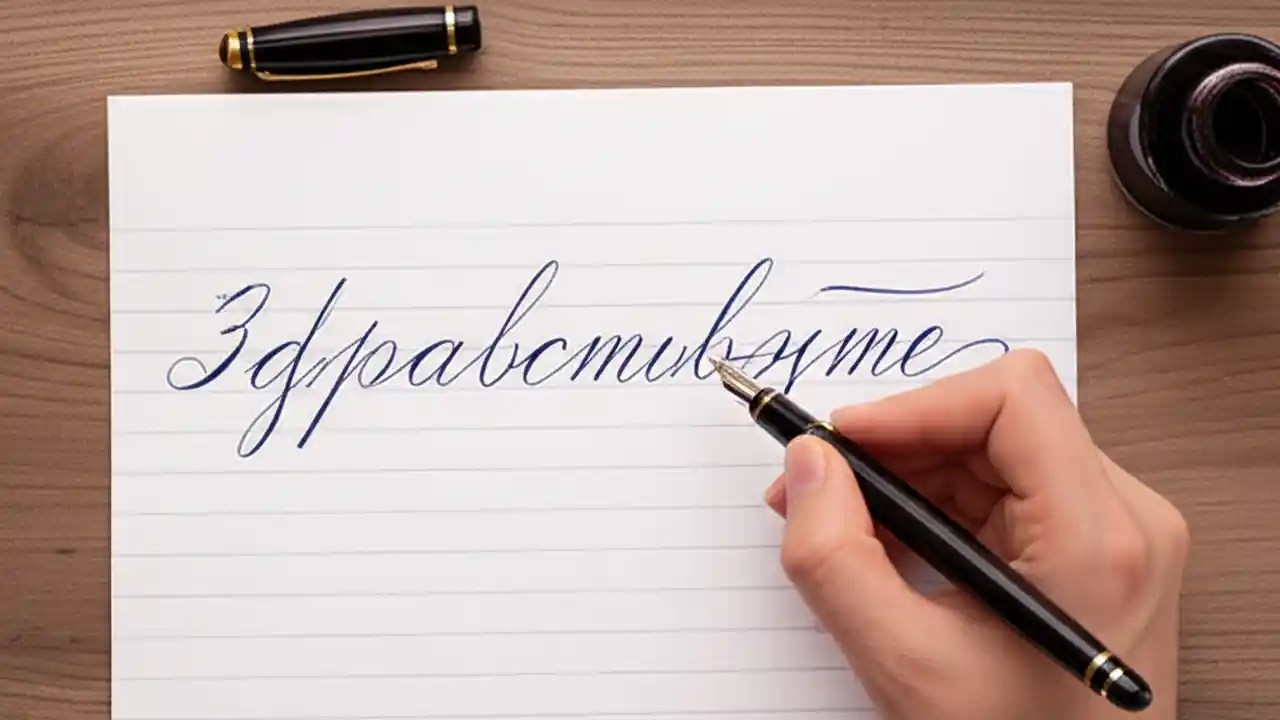 Здравствуте